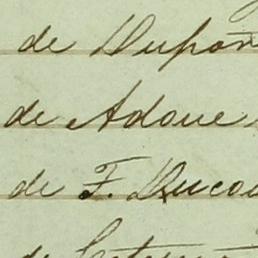 de Dupon
de Adoue
de F. Ducou
de